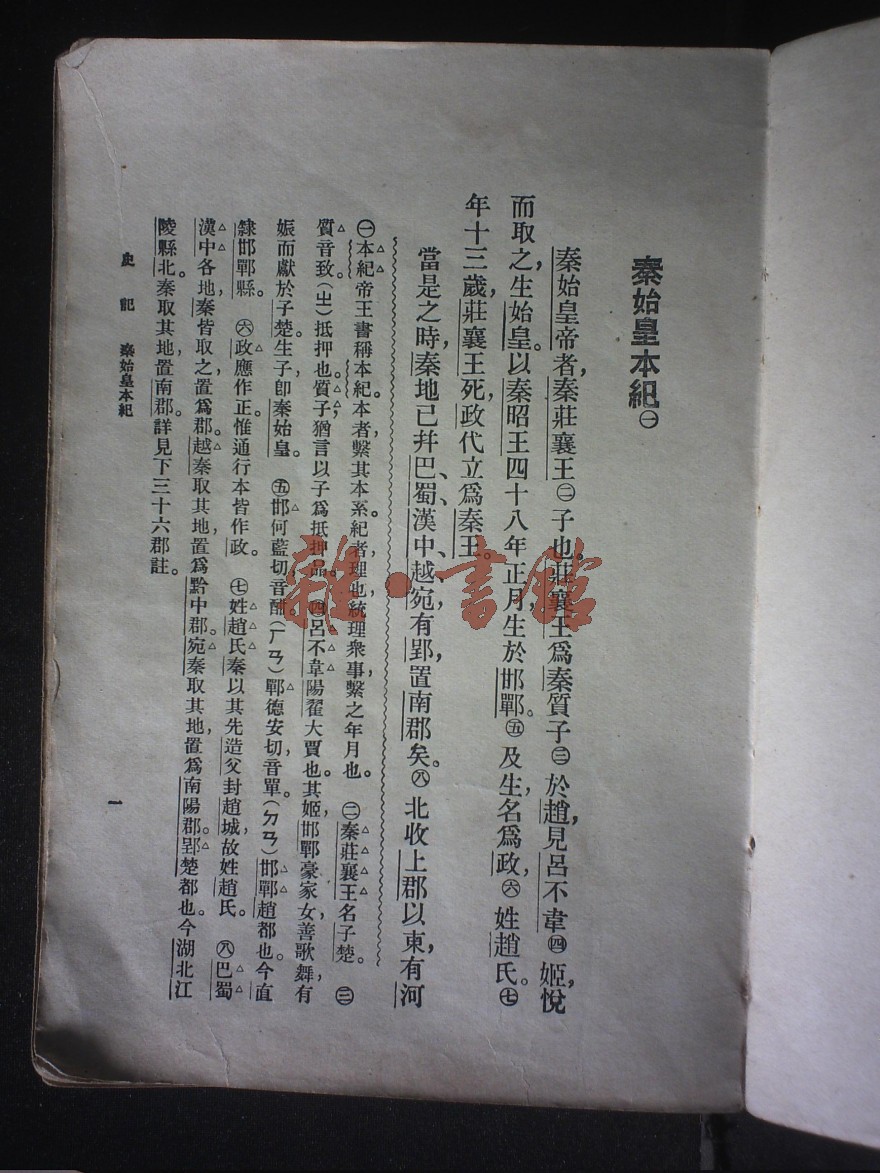 秦始皇本紀㊀
秦始皇帝者，秦莊襄王㊁子也。莊襄王爲秦質子㊂於趙，見呂不韋㊃姬，悅
而取之，生始皇。以秦昭王四十八年正月，生於邯鄲。㊄及生，名爲政，㊅姓趙氏。㊆
年十三歲，莊襄王死，政代立爲秦王。
當是之時，秦地已幷巴、蜀、漢中、越、宛，有郢，置南郡矣。㊇北收上郡以東，有河
㊀本紀帝王書稱本紀。本者，繫其本系。紀者，理也，統理衆事，繫之年月也。　㊁秦莊襄王名子楚。　㊂
質音致（ㄓ）抵押也。質子，猶言以子爲抵押品。　㊃呂不韋陽翟大賈也。其姬，邯鄲豪家女，善歌舞，有
娠而獻於子楚，生子，卽秦始皇。　㊄邯何藍切，音酣。（ㄏㄢ）鄲德安切，音單。（ㄉㄢ）邯鄲趙都也。今直
隸邯鄲縣。　㊅政應作正。惟通行本皆作政。　㊆姓趙氏秦以其先造父封趙城，故姓趙氏。　㊇巴蜀
漢中各地，秦皆取之，置爲郡。越秦取其地，置爲黔中郡。宛秦取其地，置爲南陽郡。郢楚都也。今湖北江
陵縣北。秦取其地，置南郡。詳見下三十六郡註。
史記　秦始皇本紀
一
雜·書館